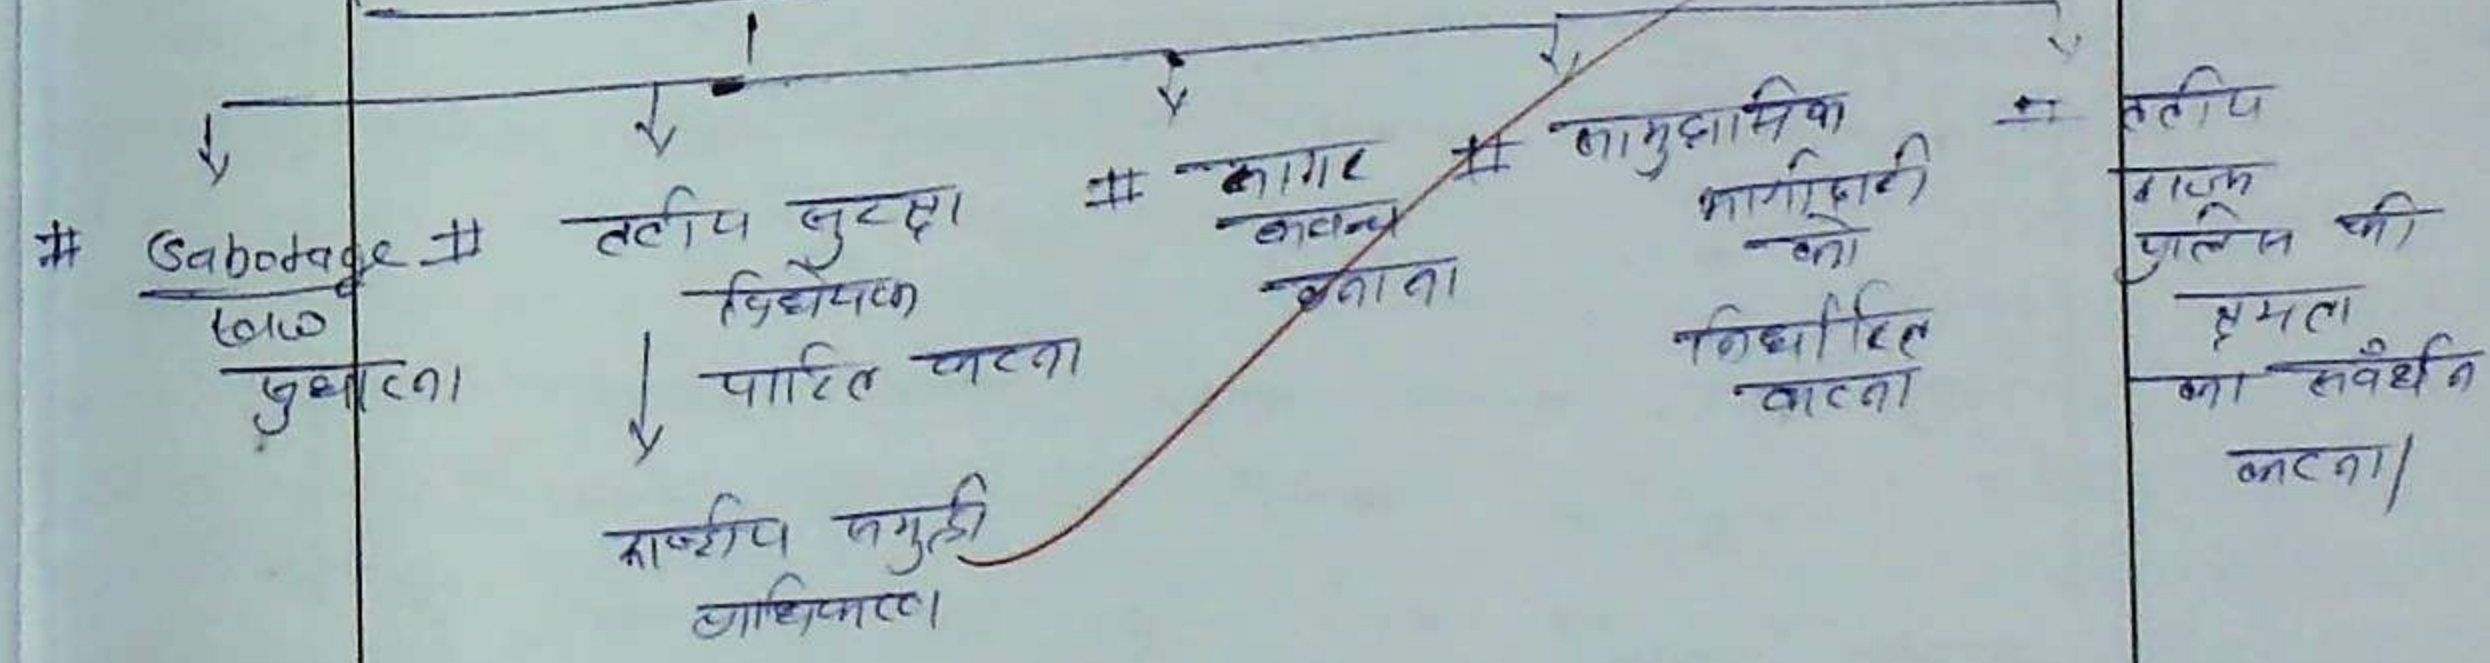 # Sabotage
सुधारना
# तटीय सुरक्षा
विधेयक
पारित करना
राष्ट्रीय समुद्री
प्राधिकरण
# सागर
कवच
बनाना
# सामुदायिक
भागीदारी
को
निर्धारित
करना
तटीय
राज्य
पुलिस की
क्षमता
का संवर्धन
करना।